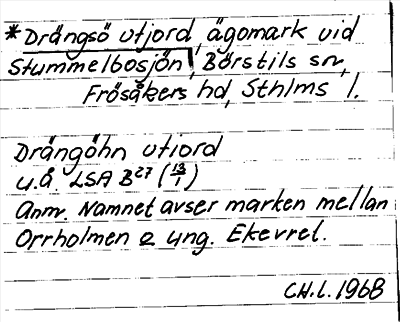 *Drängsö utjord, ägomark vid
Stummelbosjön, Börstils sn,
Frösåkers hd, Sthlms l.
Drängöhn utiord
u.å. LSA B27 (13/1)
Anm. Namnet avser marken mellan
Orrholmen o ung. Ekevrel.
CH.L. 1968